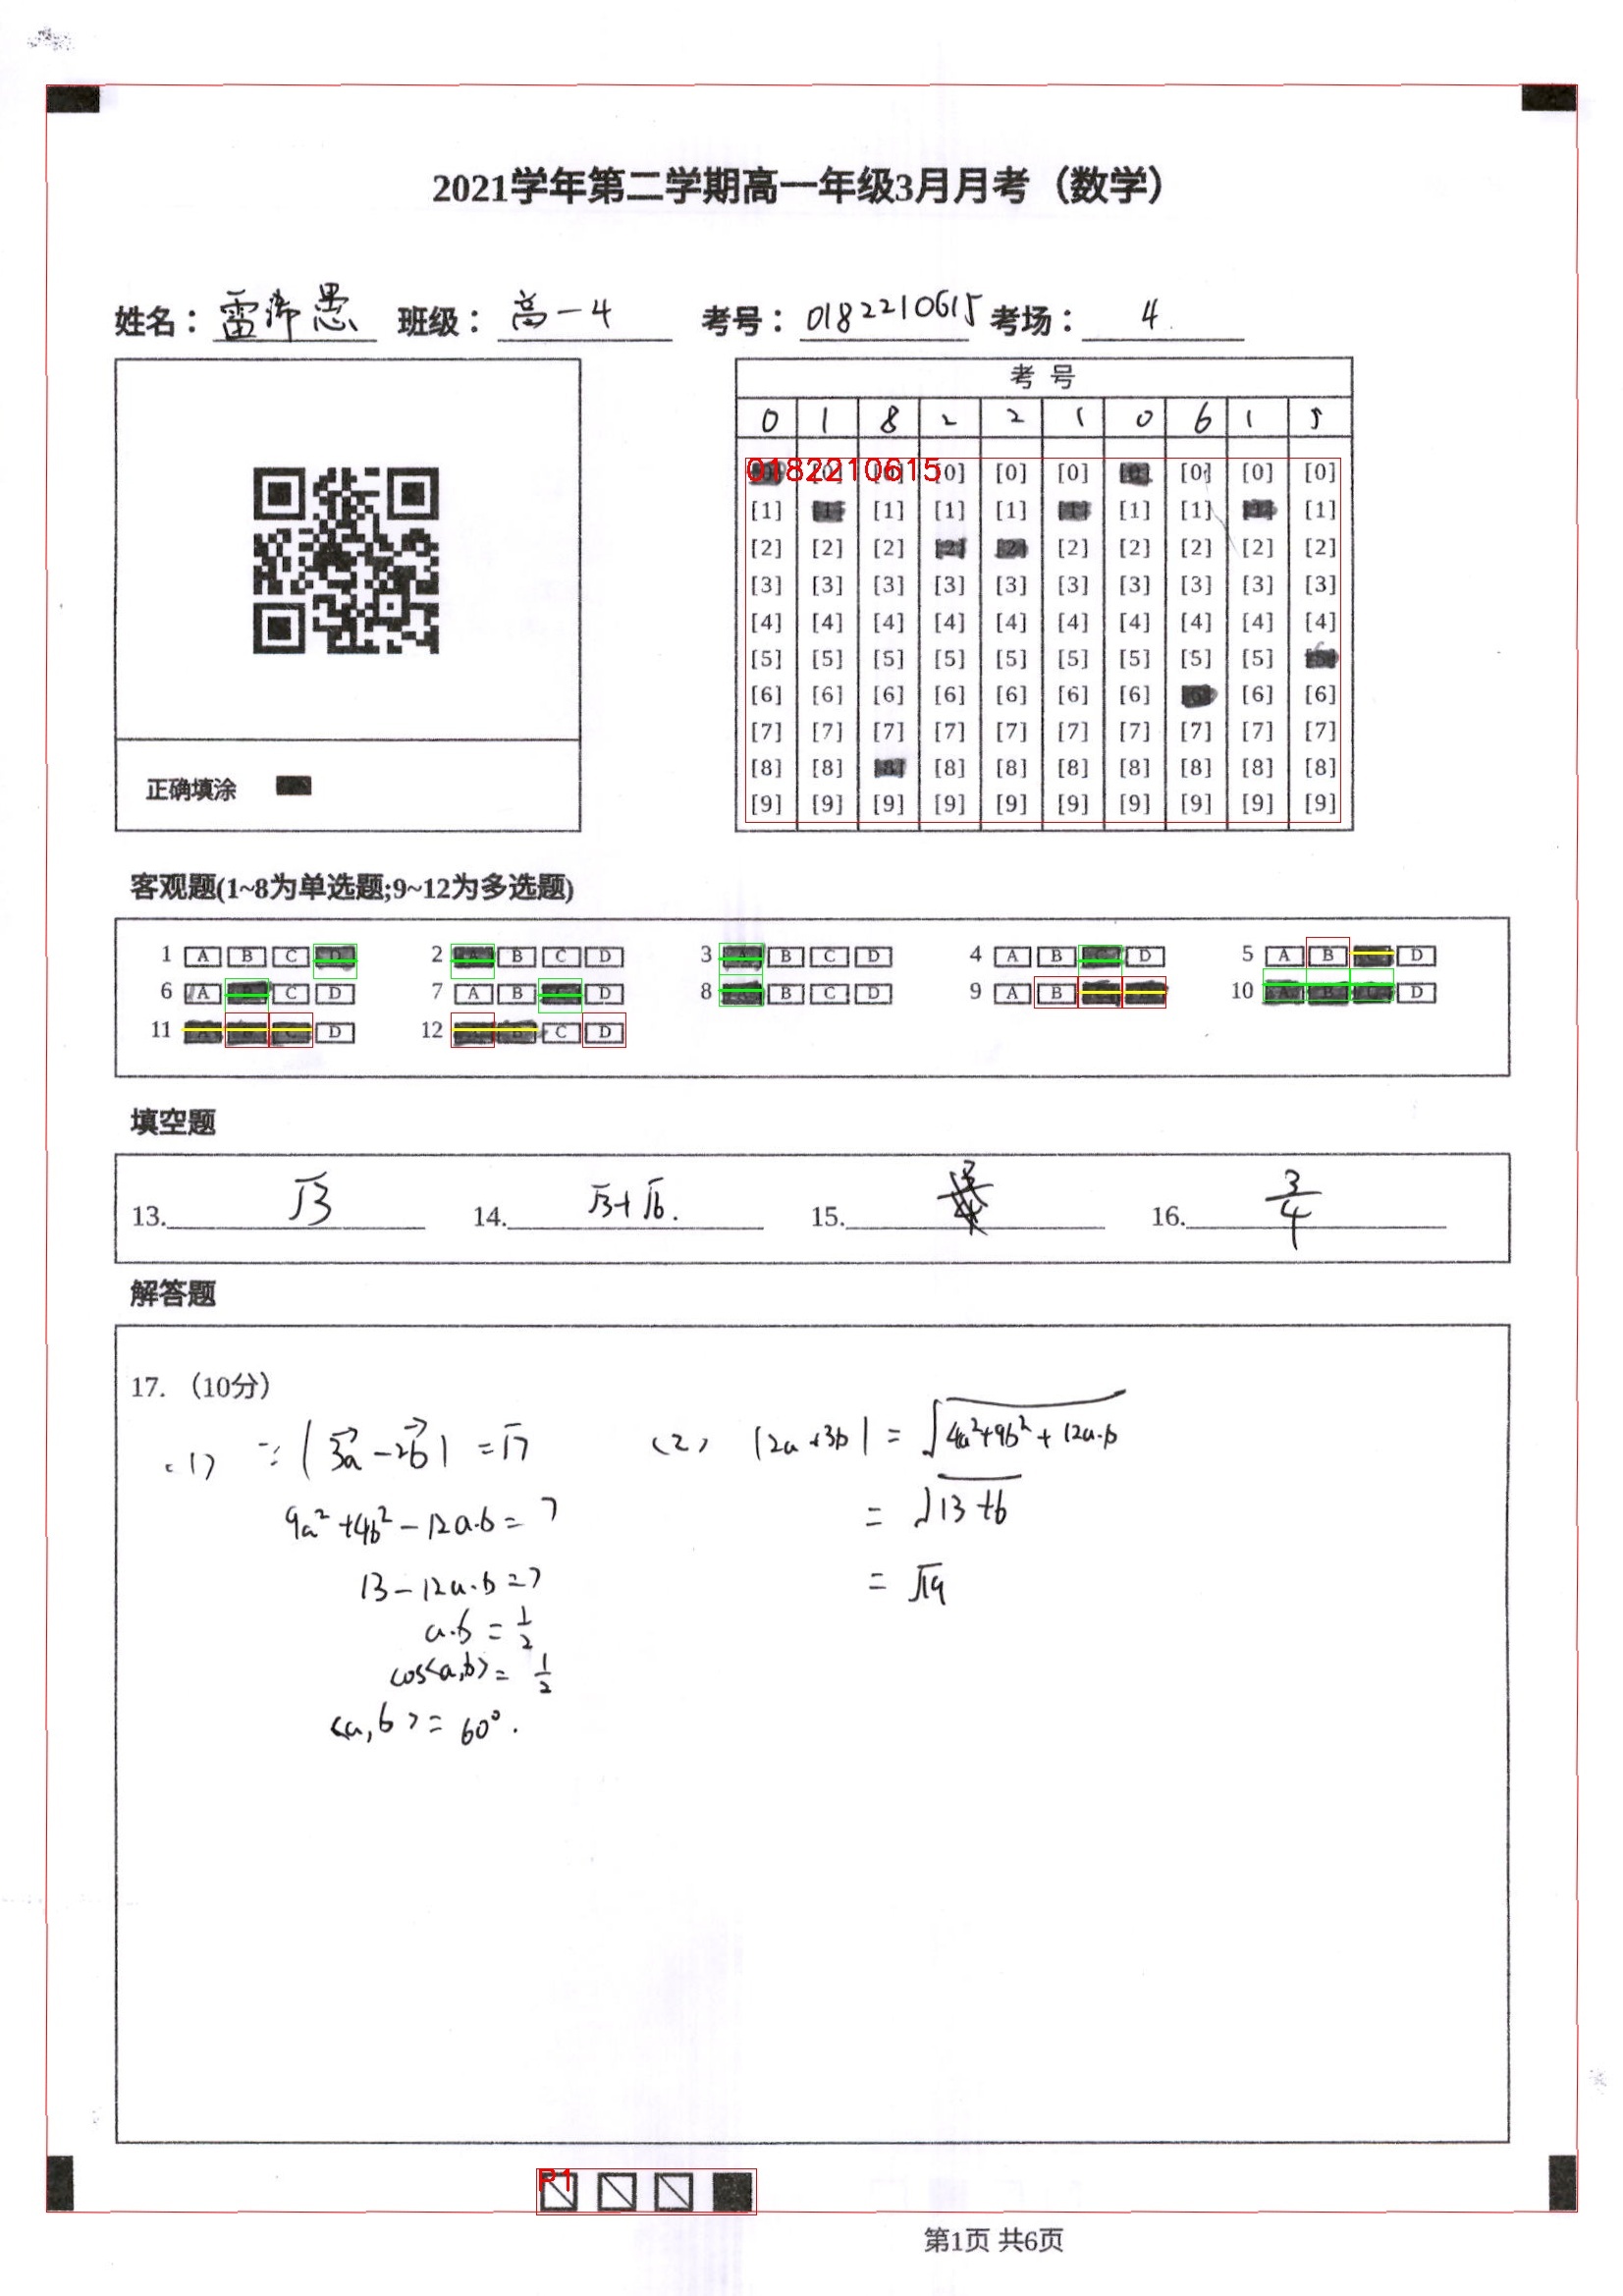 2021学年第二学期高一年级3月月考（数学）
姓名： 雷 愚 班级： 高一4 考号： 0182210615 考场： 4
考 号
0 1 8 2 2 1 0 6 1 5
0182210615
[0] [0] [0] [0] [0]
[1] [1] [1] [1] [1] [1] [1] [1] [1] [1]
[2] [2] [2] [2] [2] [2] [2] [2] [2] [2]
[3] [3] [3] [3] [3] [3] [3] [3] [3] [3]
[4] [4] [4] [4] [4] [4] [4] [4] [4] [4]
[5] [5] [5] [5] [5] [5] [5] [5] [5] [5]
[6] [6] [6] [6] [6] [6] [6] [6] [6] [6]
[7] [7] [7] [7] [7] [7] [7] [7] [7] [7]
[8] [8] [8] [8] [8] [8] [8] [8] [8] [8]
[9] [9] [9] [9] [9] [9] [9] [9] [9] [9]
正确填涂
客观题(1~8为单选题;9~12为多选题)
1 A B C D 2 A B C D 3 A B C D 4 A B C D 5 A B C D
6 A B C D 7 A B C D 8 A B C D 9 A B C D 10 A B C D
11 A B C D 12 A B C D
填空题
13. √3 14. √3+√6. 15. 16. 3/4
解答题
17. （10分）
(1) ∵ |3a⃗-2b⃗| = √7 (2) |2a+3b| = √(4a²+9b²+12a·b)
9a²+4b²-12a·b = 7 = √(13+6)
13-12a·b=7 = √19
a·b = 1/2
cos<a,b> = 1/2
<a,b> = 60°.
P1
第1页 共6页